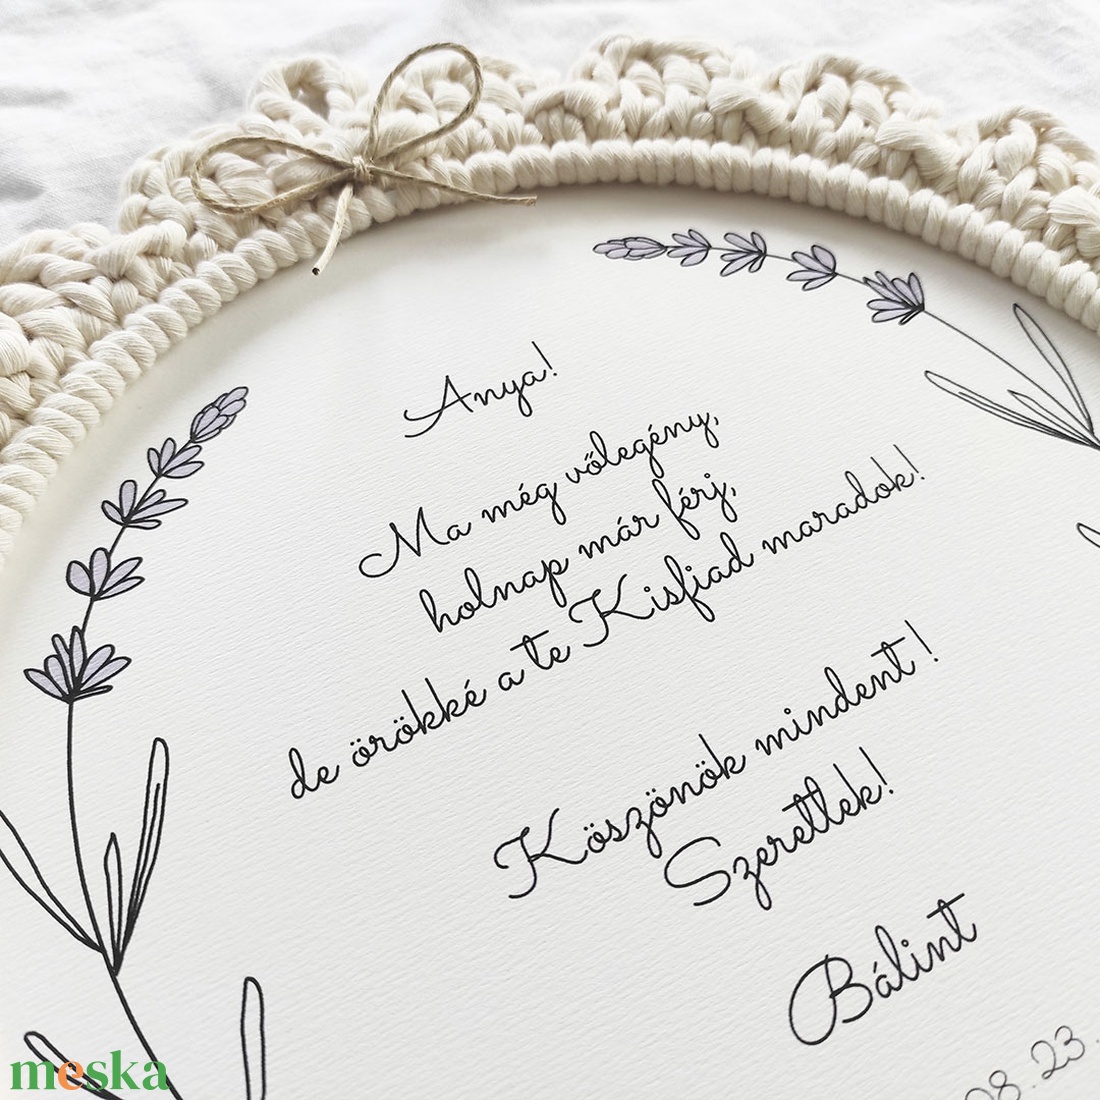 Anya!
Ma még vőlegény,
holnap már férj,
de örökké a te Kisfiad maradok!
Köszönök mindent!
Szeretlek!
Bálint
08.23.
meska